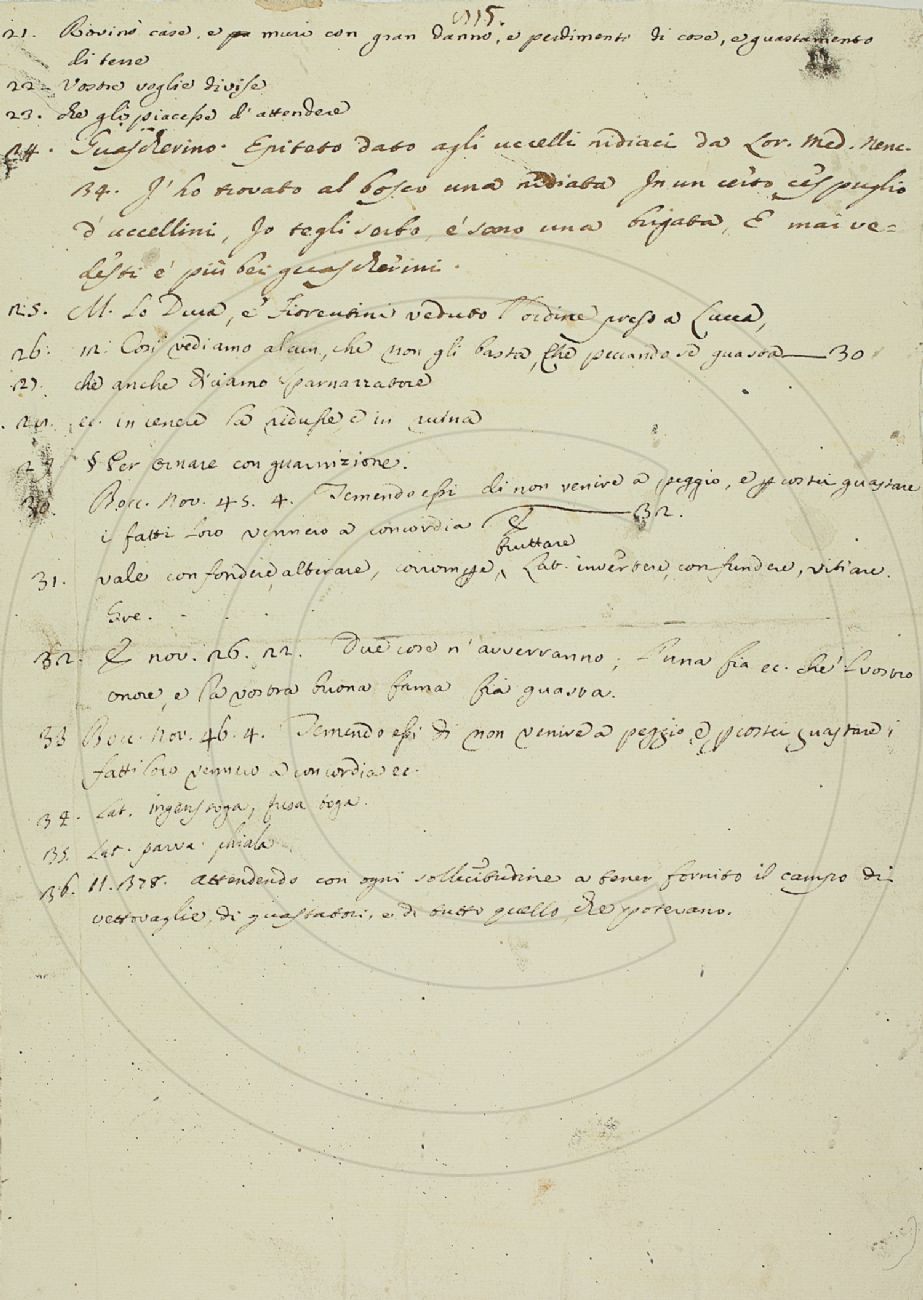 915.
21. Rovinò case, e mura con gran danno, e perdimenti di cose, e guastamento
di terre
22. Vostre voglie divise
23. che gli piacesse d'attendere
24. Guascherino. Epiteto dato agli uccelli nidiaci da Lor. Med. Nenc.
34. I' ho trovato al bosco una nidiata In un certo cespuglio
d'uccellini, Io te gli serbo, e' sono una brigata, E mai ve=
desti e' più bei guascherini.
25. M. Lo Duca, e' Fiorentini veduto l'ordine preso a Lucca,
26. n: Così vediamo alcun, che non gli basta, Che peccando se guasta—30
27. che anche diciamo sparnazzatore
28. ec. in cenere la ridusse e in ruina
29 § Per ornare con guarnizione.
30. Bocc. Nov. 45. 4. Temendo essi di non venire a peggio, e p costei guastare
i fatti loro vennero a concordia &—32.
bruttare
31. vale confondere, alterare, corrompere, Lat. invertere, confundere, vitiare.
Gre. . . .
32. & nov. 26. 22. Due cose n'avverranno; l'una fia ec. che 'l vostro
onore, e la vostra buona fama fia guasta.
33 Bocc. Nov. 46. 4. Temendo essi di non venire a peggio e p costei guastare i
fatti loro vennero a concordia ec.
34. Lat. ingens toga, fusa toga.
35. Lat. parva phiala
36. 11. 378. attendendo con ogni sollecitudine a tener fornito il campo di
vettovaglie, di guastatori, e di tutto quello, che potevano.